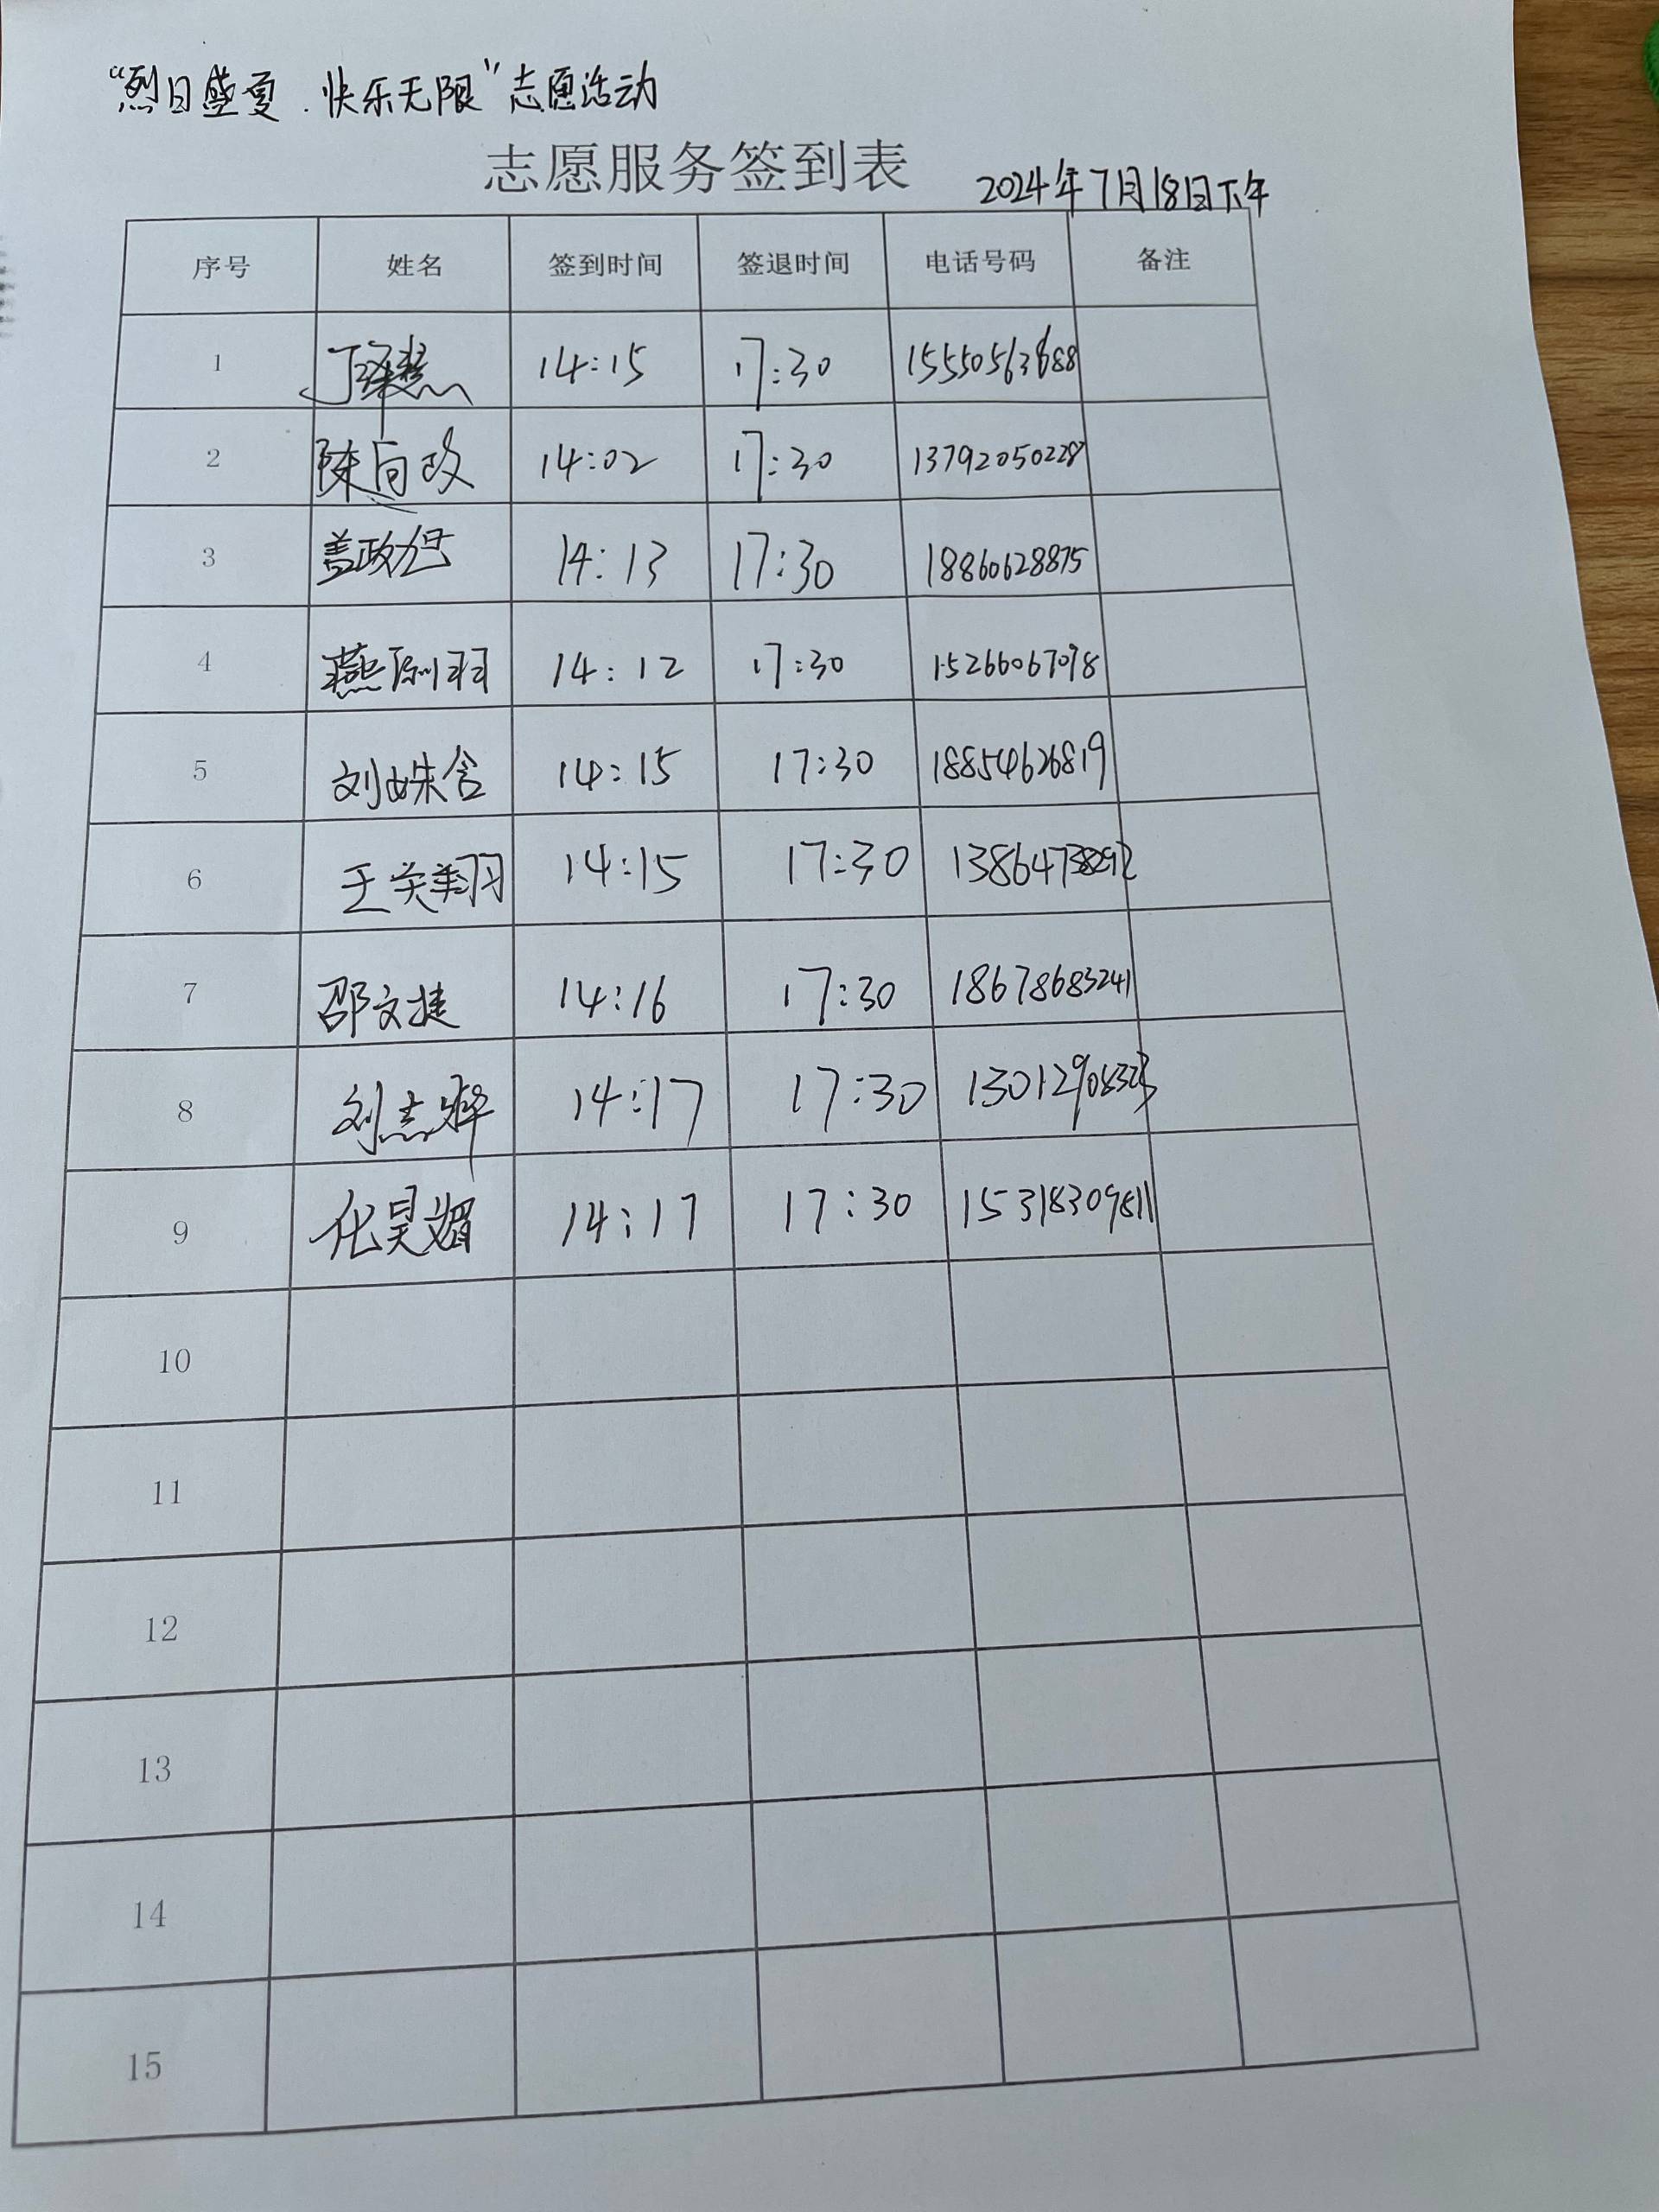 “烈日盛夏.快乐无限”志愿活动
志愿服务签到表
2024年7月18日下午
序号 姓名 签到时间 签退时间 电话号码 备注
1 14:15 17:30
2 陈向政 14:02 17:30 13792050228
3 盖政旭 14:13 17:30 18860628875
4 燕 羽 14:12 17:30 15266067098
5 刘姝含 14:15 17:30 18854626819
6 王关翔 14:15 17:30
7 邵文捷 14:16 17:30 18678683241
8 刘志烨 14:17 17:30
9 化昊媚 14:17 17:30 15318309811
10
11
12
13
14
15